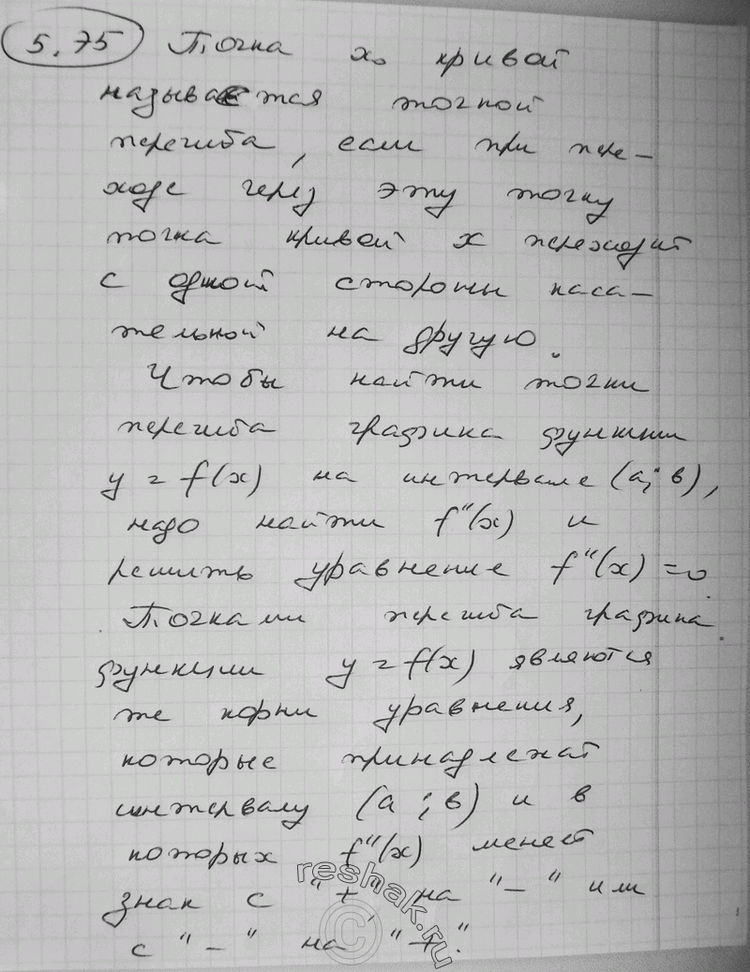 5.75 Точка x₀ кривой
называется точкой
перегиба, если при пере-
ходе через эту точку
точка кривой x переходит
с одной стороны каса-
тельной на другую.
Чтобы найти точки
перегиба графика функции
y = f(x) на интервале (a; b),
надо найти f''(x) и
решить уравнение f''(x) = 0.
Точками перегиба графика
функции y = f(x) являются
те корни уравнения,
которые принадлежат
интервалу (a; b) и в
которых f''(x) меняет
знак с "+" на "-" или
с "-" на "+".
reshak.ru